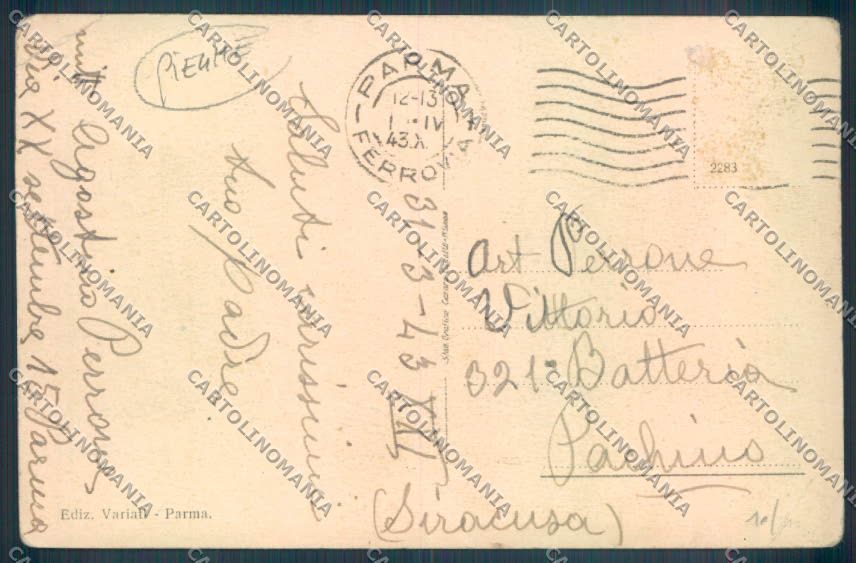 PIEGHE
mitt. Agostino Perrone
Via XX settembre 15 Parma
Saluti carissimi
tuo Padre
31-3-43 XXI
PARMA
12-13
1 IV
43.X
FERROVIA
2283
Art Perrone
Vittorio
321a Batteria
Pachino
(Siracusa)
Ediz. Variati - Parma.
CARTOLINOMANIA